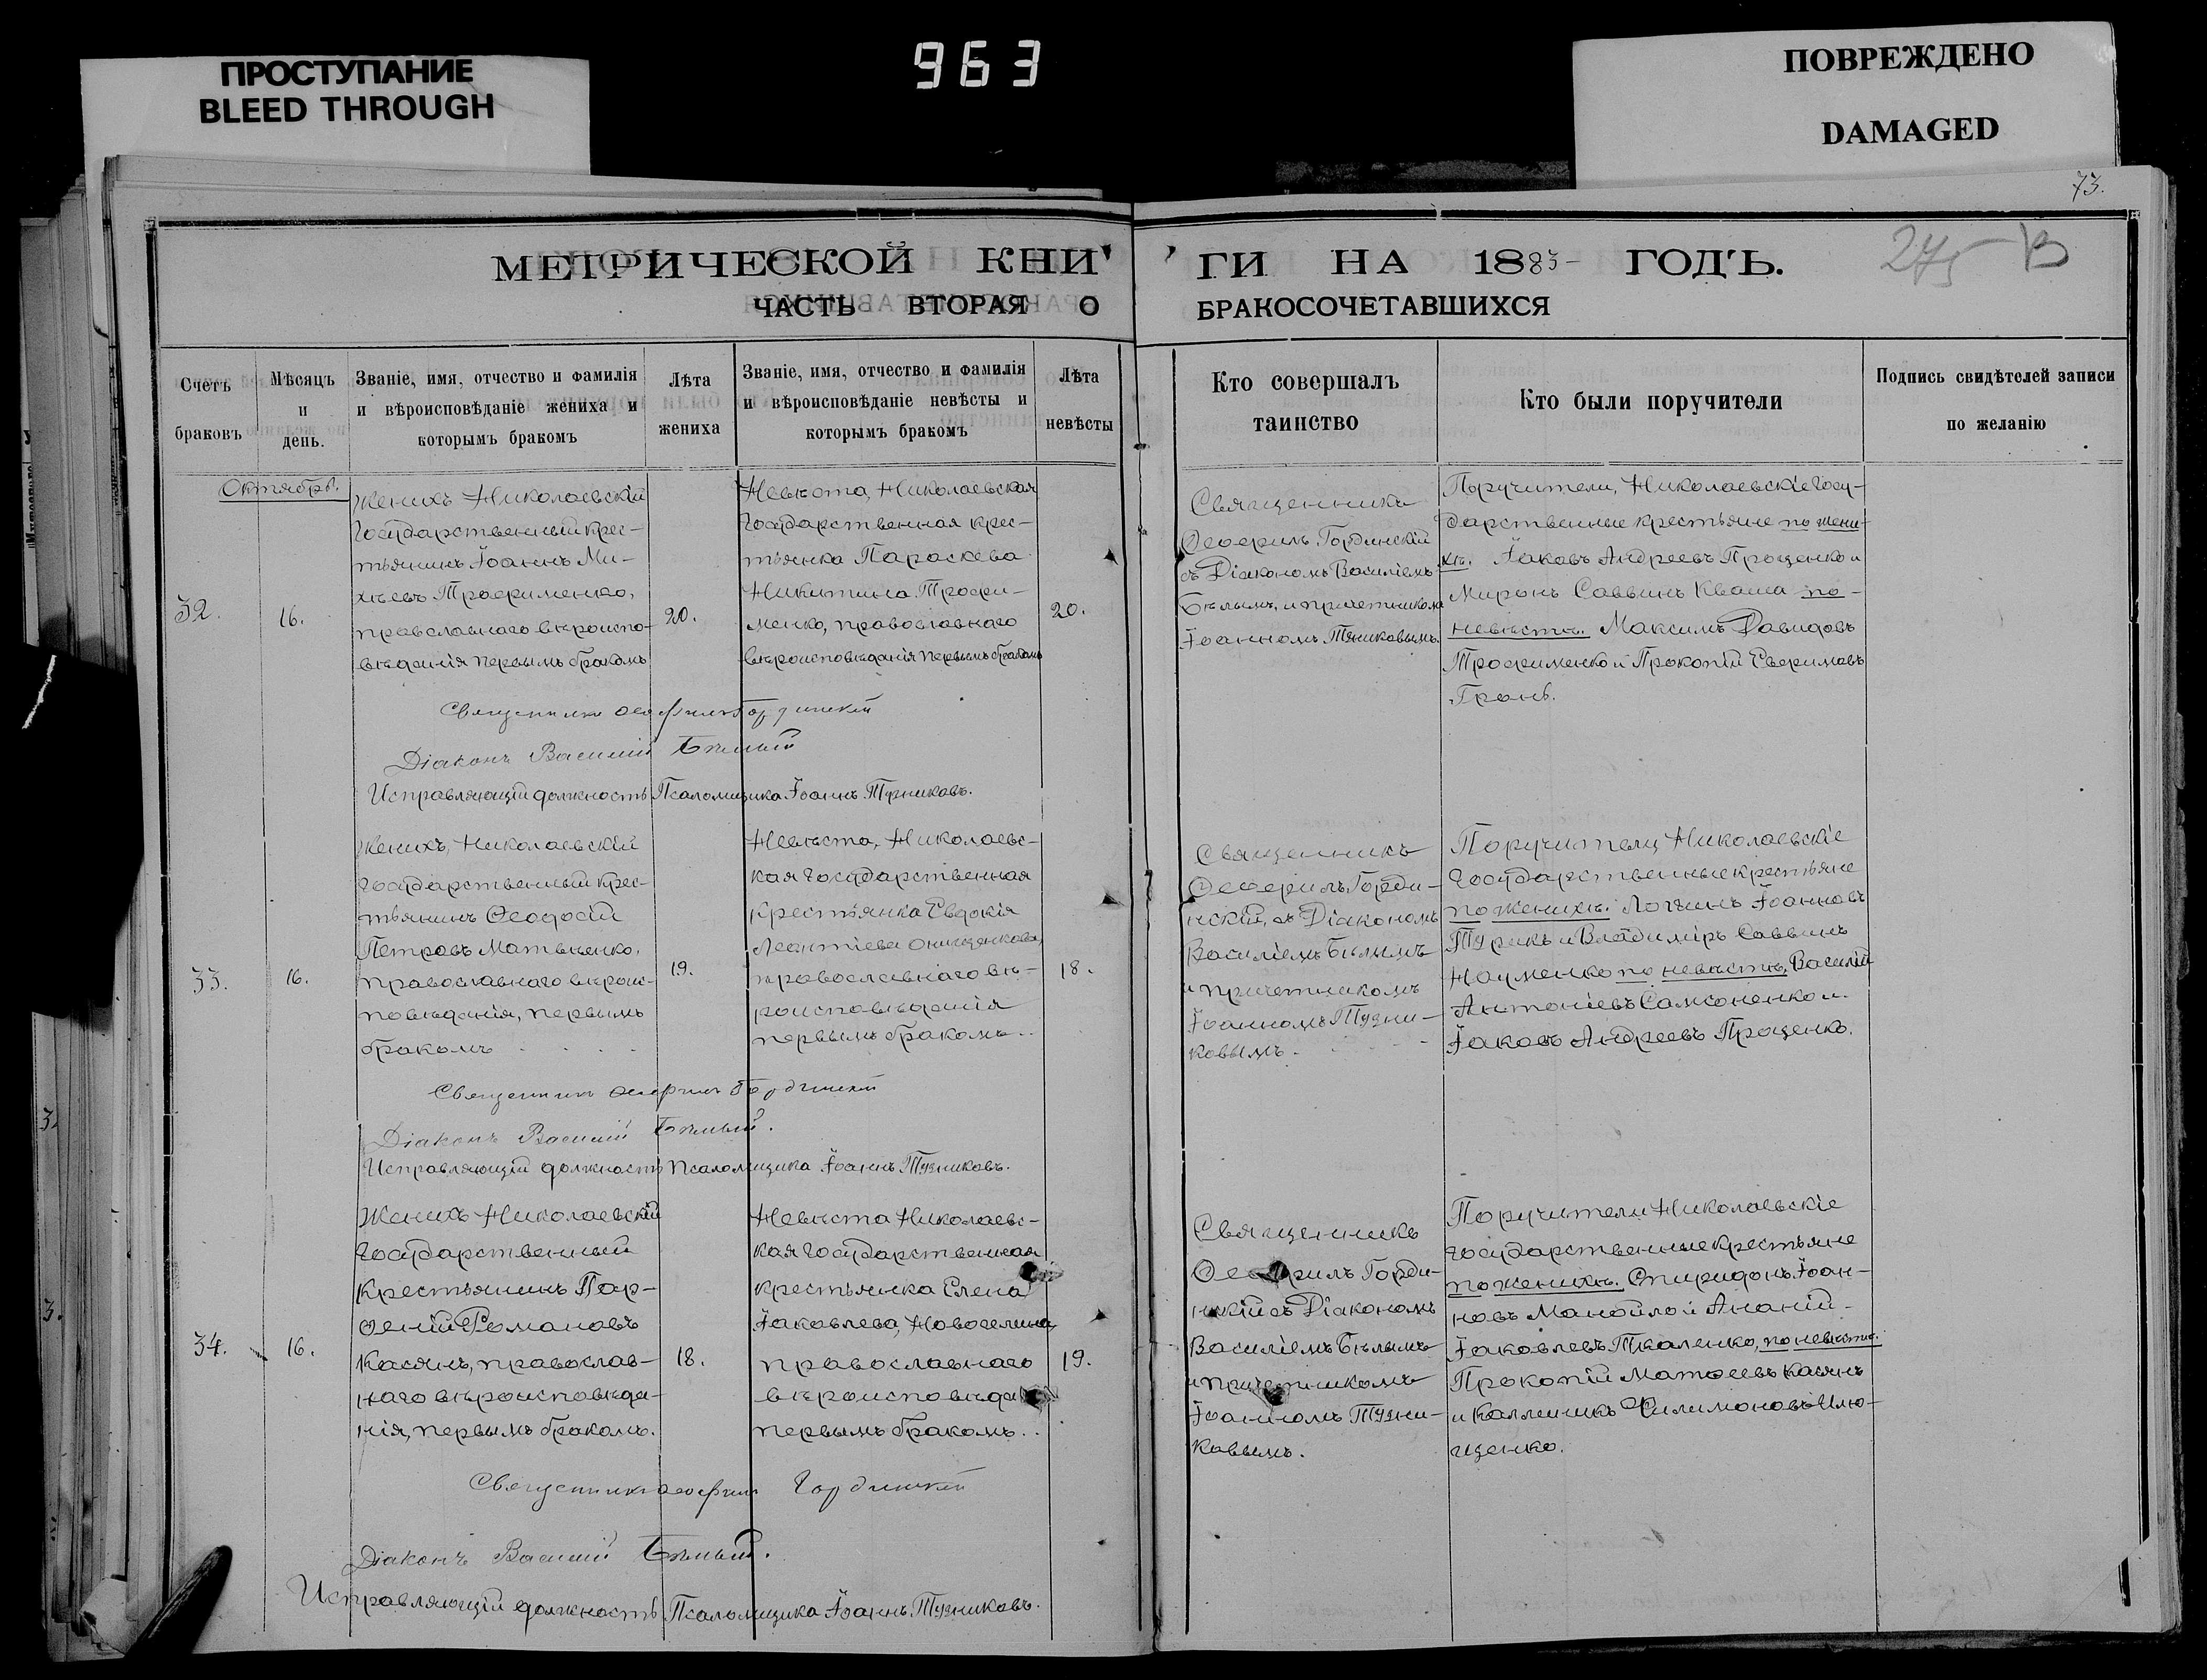 ПРОСТУПАНИЕ
BLEED THROUGH
963
ПОВРЕЖДЕНО
DAMAGED
73.
МЕТРИЧЕСКОЙ КНИ
ГИ НА 1883 ГОДЪ.
275 В
ЧАСТЬ ВТОРАЯ О
БРАКОСОЧЕТАВШИХСЯ
Счетъ
браковъ
Мѣсяцъ
и
день.
Званіе, имя, отчество и фамилія
и вѣроисповѣданіе жениха и
которымъ бракомъ
Лѣта
жениха
Званіе, имя, отчество и фамилія
и вѣроисповѣданіе невѣсты и
которымъ бракомъ
Лѣта
невѣсты
Кто совершалъ
таинство
Кто были поручители
Подпись свидѣтелей записи
по желанію
Октябрь.
32.
16.
Женихъ Николаевскій
Государственный крес-
тьянинъ Іоаннъ Ми-
хѣевъ Трофименко,
православнаго вѣроиспо-
вѣданія первымъ бракомъ
20.
Невѣста, Николаевская
Государственная крес-
тьянка Параскева
Никитина Трофи-
менко, православнаго
вѣроисповѣданія первымъ бракомъ
20.
Священникъ
Ѳеофилъ Гординскій
съ Діакономъ Василіемъ
Бѣлымъ, и причетникомъ
Іоанномъ Тузниковымъ.
Поручители, Николаевскіе Госу-
дарственные крестьяне по жени-
хѣ. Іаковъ Андреевъ Проценко и
Миронъ Саввинъ Кваша по
невѣстѣ. Максимъ Давидовъ
Трофименко и Прокопій Ефимовъ
Грань.
Священникъ Ѳеофилъ Гординскій
Діаконъ Василій Бѣлый
Исправляющій должность Псаломщика Іоаннъ Тузниковъ.
33.
16.
Женихъ, Николаевскій
Государственный крес-
тьянинъ Ѳеодосій
Петровъ Матвѣенко,
православнаго вѣроис-
повѣданія, первымъ
бракомъ
19.
Невѣста, Николаевс-
кая Государственная
крестьянка Евдокія
Леонтіева Онищенкова,
православнаго вѣ-
роисповѣданія
первымъ бракомъ
18.
Священникъ
Ѳеофилъ Горди-
нскій, съ Діакономъ
Василіемъ Бѣлымъ
и причетникомъ
Іоанномъ Тузни-
ковымъ.
Поручители Николаевскіе
Государственные крестьяне
по женихѣ: Логинъ Іоанновъ
Турикъ и Владиміръ Саввинъ
Науменко по невѣстѣ, Василій
Антоніевъ Самсоненко и
Іаковъ Андреевъ Проценко.
Священникъ Ѳеофилъ Гординскій
Діаконъ Василій Бѣлый.
Исправляющій должность Псаломщика Іоаннъ Тузниковъ.
34.
16.
Женихъ Николаевскій
Государственный
Крестьянинъ Пар-
ѳеній Романовъ
Касянъ, православ-
наго вѣроисповѣда-
нія, первымъ бракомъ.
18.
Невѣста Николаевс-
кая Государственная
крестьянка Елена
Іаковлева, Новоселина,
православнаго
вѣроисповѣда
первымъ бракомъ.
19.
Священникъ
Ѳеофилъ Горди-
нскій съ Діакономъ
Василіемъ Бѣлымъ
и причетникомъ
Іоанномъ Тузни-
ковымъ.
Поручители Николаевскіе
Государственные крестьяне
по женихѣ. Спиридонъ Іоан-
новъ Манойло и Ананій
Іаковлевъ Ткаленко, по невѣстѣ.
Прокопій Матѳеевъ Касянъ
и Каллиникъ Филимоновъ Илю-
щенко.
Священникъ Ѳеофилъ Гординскій
Діаконъ Василій Бѣлый.
Исправляющій должность Псаломщика Іоаннъ Тузниковъ.